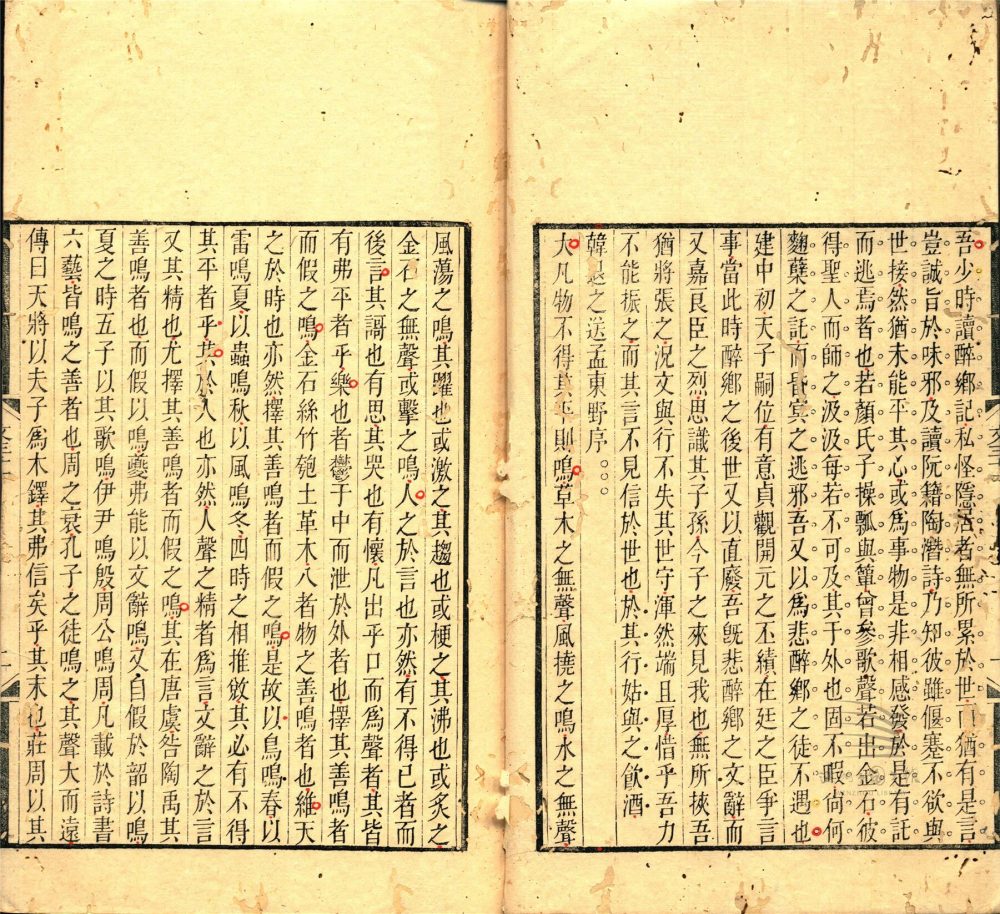 吾少時讀醉鄉記私怪隱居者無所累於世而猶有是言
豈誠旨於味邪及讀阮籍陶潛詩乃知彼雖偃蹇不欲與
世接然猶未能平其心或爲事物是非相感發於是有託
而逃焉者也若顏氏子操瓢與簞曾參歌聲若出金石彼
得聖人而師之汲汲每若不可及其于外也固不暇尚何
麴糵之託而昬冥之逃邪吾又以爲悲醉鄉之徒不遇也
建中初天子嗣位有意貞觀開元之丕績在廷之臣爭言
事當此時醉鄉之後世又以直廢吾旣悲醉鄉之文辭而
又嘉良臣之烈思識其子孫今子之來見我也無所挾吾
猶將張之況文與行不失其世守渾然端且厚惜乎吾力
不能振之而其言不見信於世也於其行姑與之飲酒
韓退之送孟東野序
大凡物不得其平則鳴草木之無聲風撓之鳴水之無聲
風蕩之鳴其躍也或激之其趨也或梗之其沸也或炙之
金石之無聲或擊之鳴人之於言也亦然有不得已者而
後言其謌也有思其哭也有懷凡出乎口而爲聲者其皆
有弗平者乎樂也者鬱于中而泄於外者也擇其善鳴者
而假之鳴金石絲竹匏土革木八者物之善鳴者也維天
之於時也亦然擇其善鳴者而假之鳴是故以鳥鳴春以
雷鳴夏以蟲鳴秋以風鳴冬四時之相推敓其必有不得
其平者乎其於人也亦然人聲之精者爲言文辭之於言
又其精也尤擇其善鳴者而假之鳴其在唐虞咎陶禹其
善鳴者也而假以鳴夔弗能以文辭鳴又自假於韶以鳴
夏之時五子以其歌鳴伊尹鳴殷周公鳴周凡載於詩書
六藝皆鳴之善者也周之衰孔子之徒鳴之其聲大而遠
傳曰天將以夫子爲木鐸其弗信矣乎其末也莊周以其